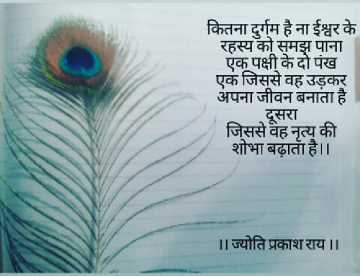 कितना दुर्गम है ना ईश्वर के
रहस्य को समझ पाना
एक पक्षी के दो पंख
एक जिससे वह उड़कर
अपना जीवन बनाता है
दूसरा
जिससे वह नृत्य की
शोभा बढ़ाता है।।
।। ज्योति प्रकाश राय ।।